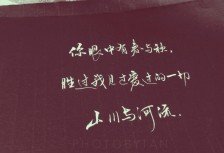 你眼中有春与秋,
胜过我见过爱过的一切
山川与河流.